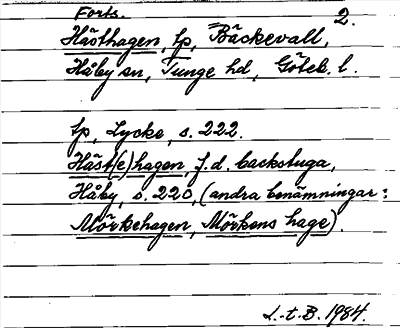 Forts. 2.
Hästhagen, lp, Bäckevall,
Håby sn, Tunge hd, Göteb. l.
lp, Lycke, s. 222.
Häst(e)hagen, f.d. backstuga,
Håby, s. 220, (andra benämningar:
Mörkehagen, Mörkens hage).
L.-t.B. 1984.